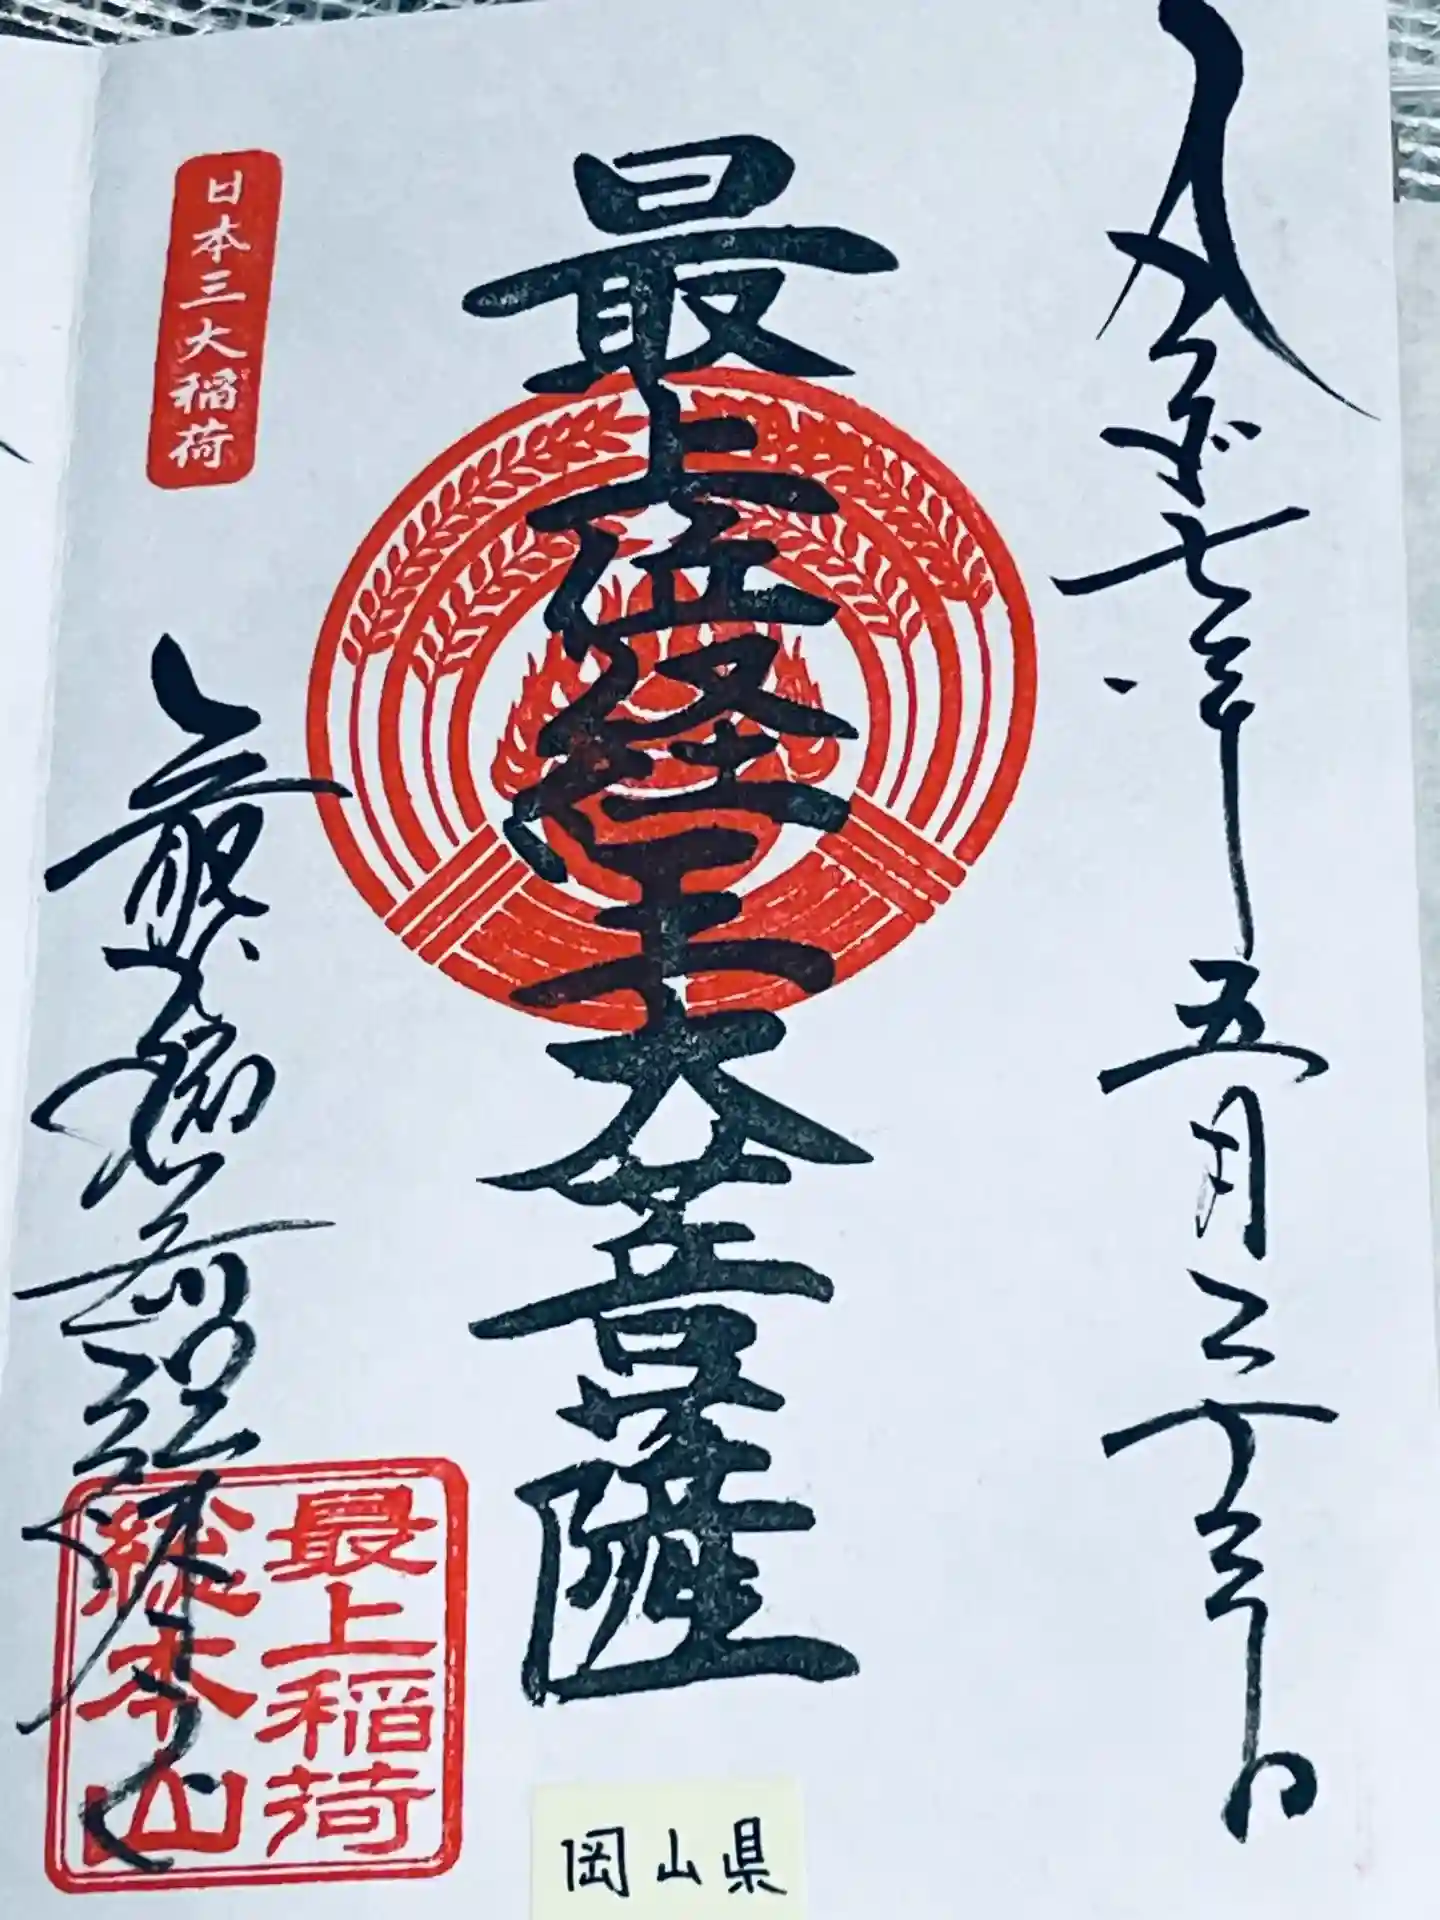 令和七年五月二十三日
最上位経王大菩薩
日本三大稲荷
最上稲荷総本山
最上稲荷
総本山
岡山県